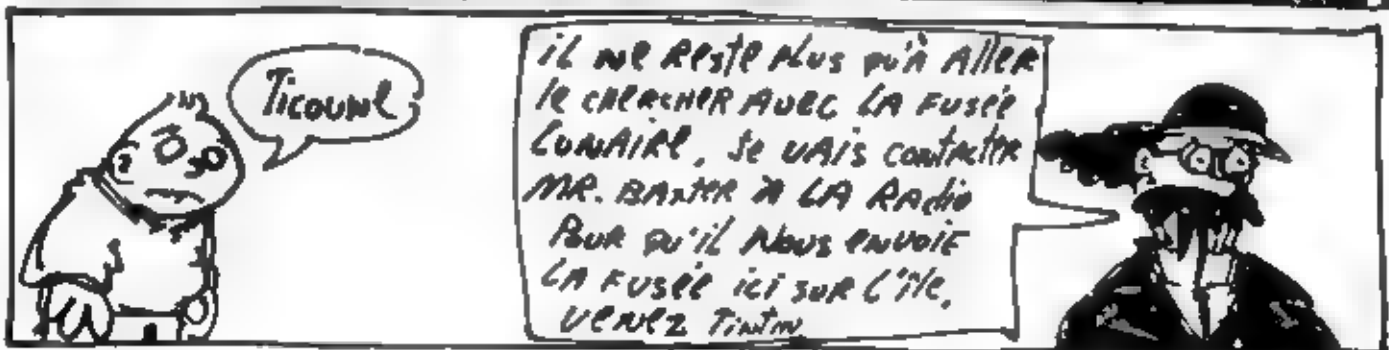 Ticoune
il ne reste plus qu'à aller
le chercher avec la fusée
lunaire. Je vais contacter
Mr. Baxter à la radio
pour qu'il nous envoie
la fusée ici sur l'île.
venez Tintin